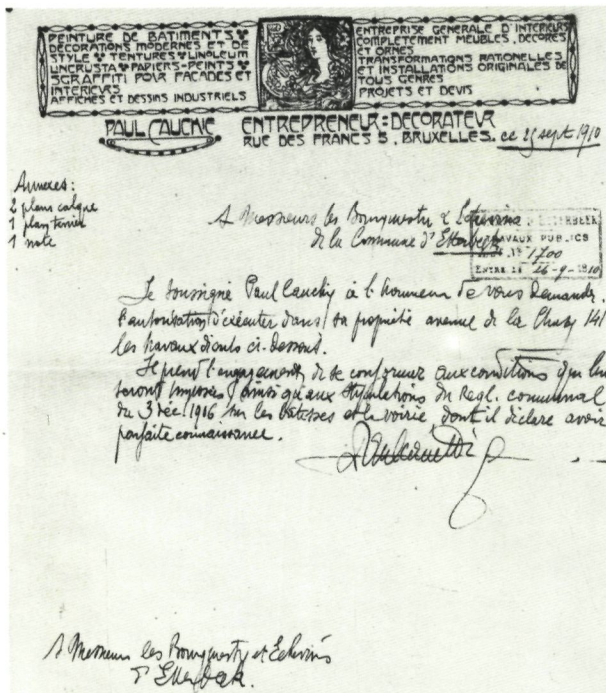 PEINTURE DE BATIMENTS
DÉCORATIONS MODERNES ET DE
STYLE TENTURES LINOLEUM
LINCRUSTA PAPIERS-PEINTS
SGRAFFITI POUR FACADES ET
INTERIEURS
AFFICHES ET DESSINS INDUSTRIELS
ENTREPRISE GENERALE D'INTERIEURS
COMPLETEMENT MEUBLES, DECORES
ET ORNES
TRANSFORMATIONS RATIONELLES
ET INSTALLATIONS ORIGINALES DE
TOUS GENRES
PROJETS ET DEVIS
PAUL CAUCHIE ENTREPRENEUR=DECORATEUR
RUE DES FRANCS 5, BRUXELLES. ce 25 sept 1910
Annexes:
2 plans calque
1 plan terrier
1 note
A Messieurs les Bourgmestre &
de la Commune d'Etterbeek
ETTERBEEK
TRAVAUX PUBLICS
1700
ENTRÉ LE 26-9-1910
Je soussigné Paul Cauchie à l'honneur de vous demander
l'autorisation d'exécuter dans sa propriété avenue de la Chasse 141
les travaux ci-dessous.
Il prend l'engagement de se conformer aux conditions qui lui
seront imposées ainsi qu'aux stipulations du Regl. communal
du 3 déc. 1906 sur les batisses et la voirie, dont il déclare avoir
parfaite connaissance.
A Messieurs les Bourgmestre et Echevins
d'Etterbeek.